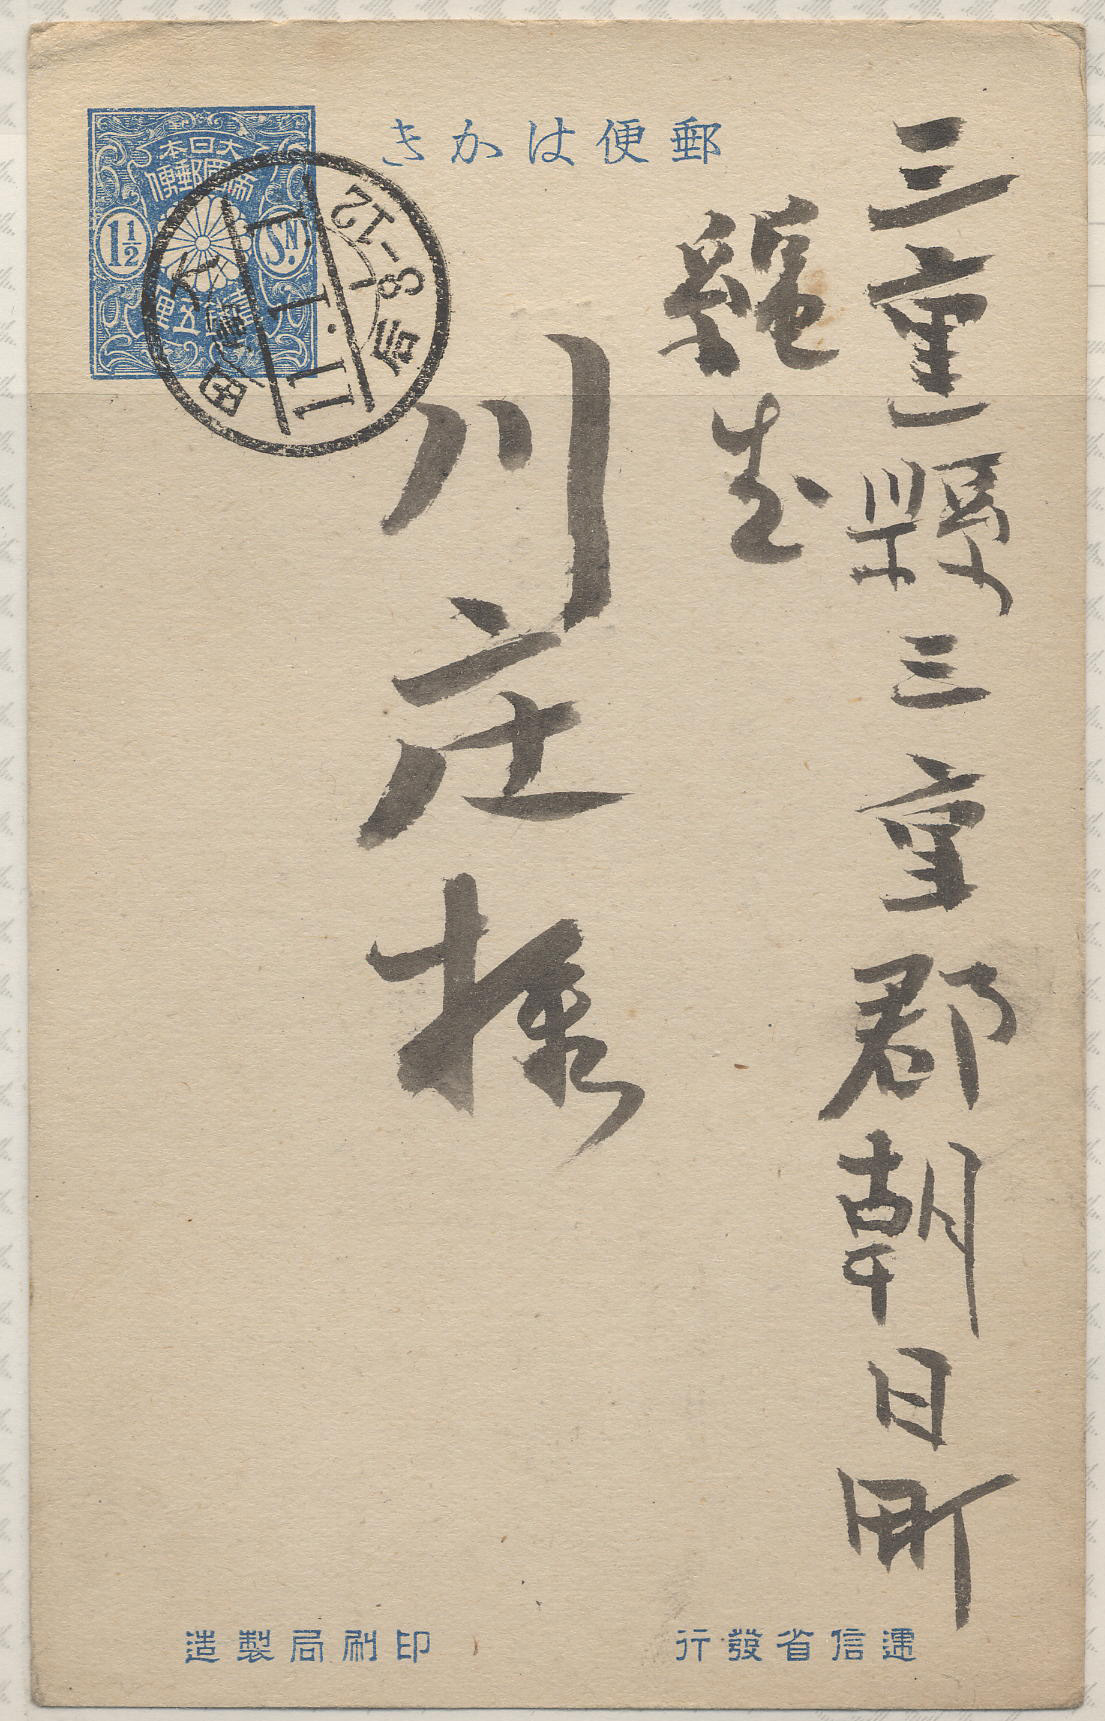 郵便はかき
大日本
帝國郵便
1½
SN.
壹錢五厘
11.1.1
后8-12
三重縣三重郡朝日町
縄生
川庄様
逓信省發行
印刷局製造